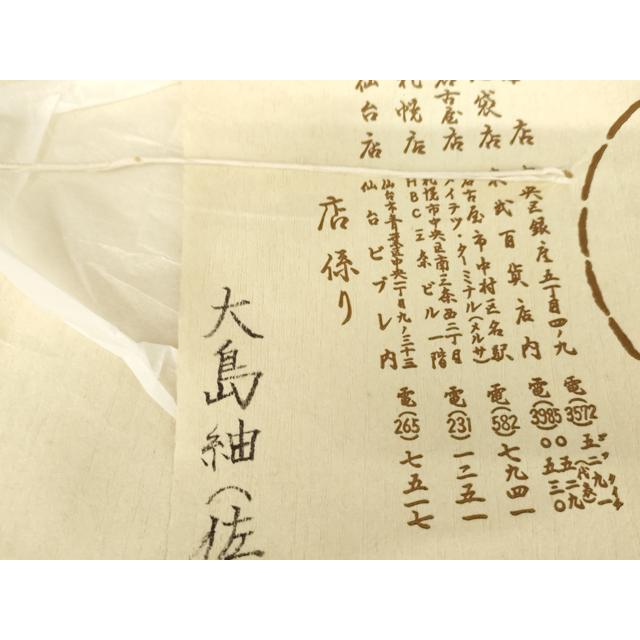 店
央区銀座五丁目四ノ九
電(3572)五二九一
(代表)
袋店
東武百貨店内
電(3985)〇〇五二九
五三〇
名古屋店
名古屋市中村区名駅
メイテツ・ターミナル(メルサ)
電(582)七九四一
札幌店
札幌市中央区南三条西二丁目
HBC三条ビル一階
電(231)一二五一
仙台店
仙台市青葉区中央一丁目九ノ三十三
仙台ビブレ内
電(265)七五一七
店係り
大島紬(佐